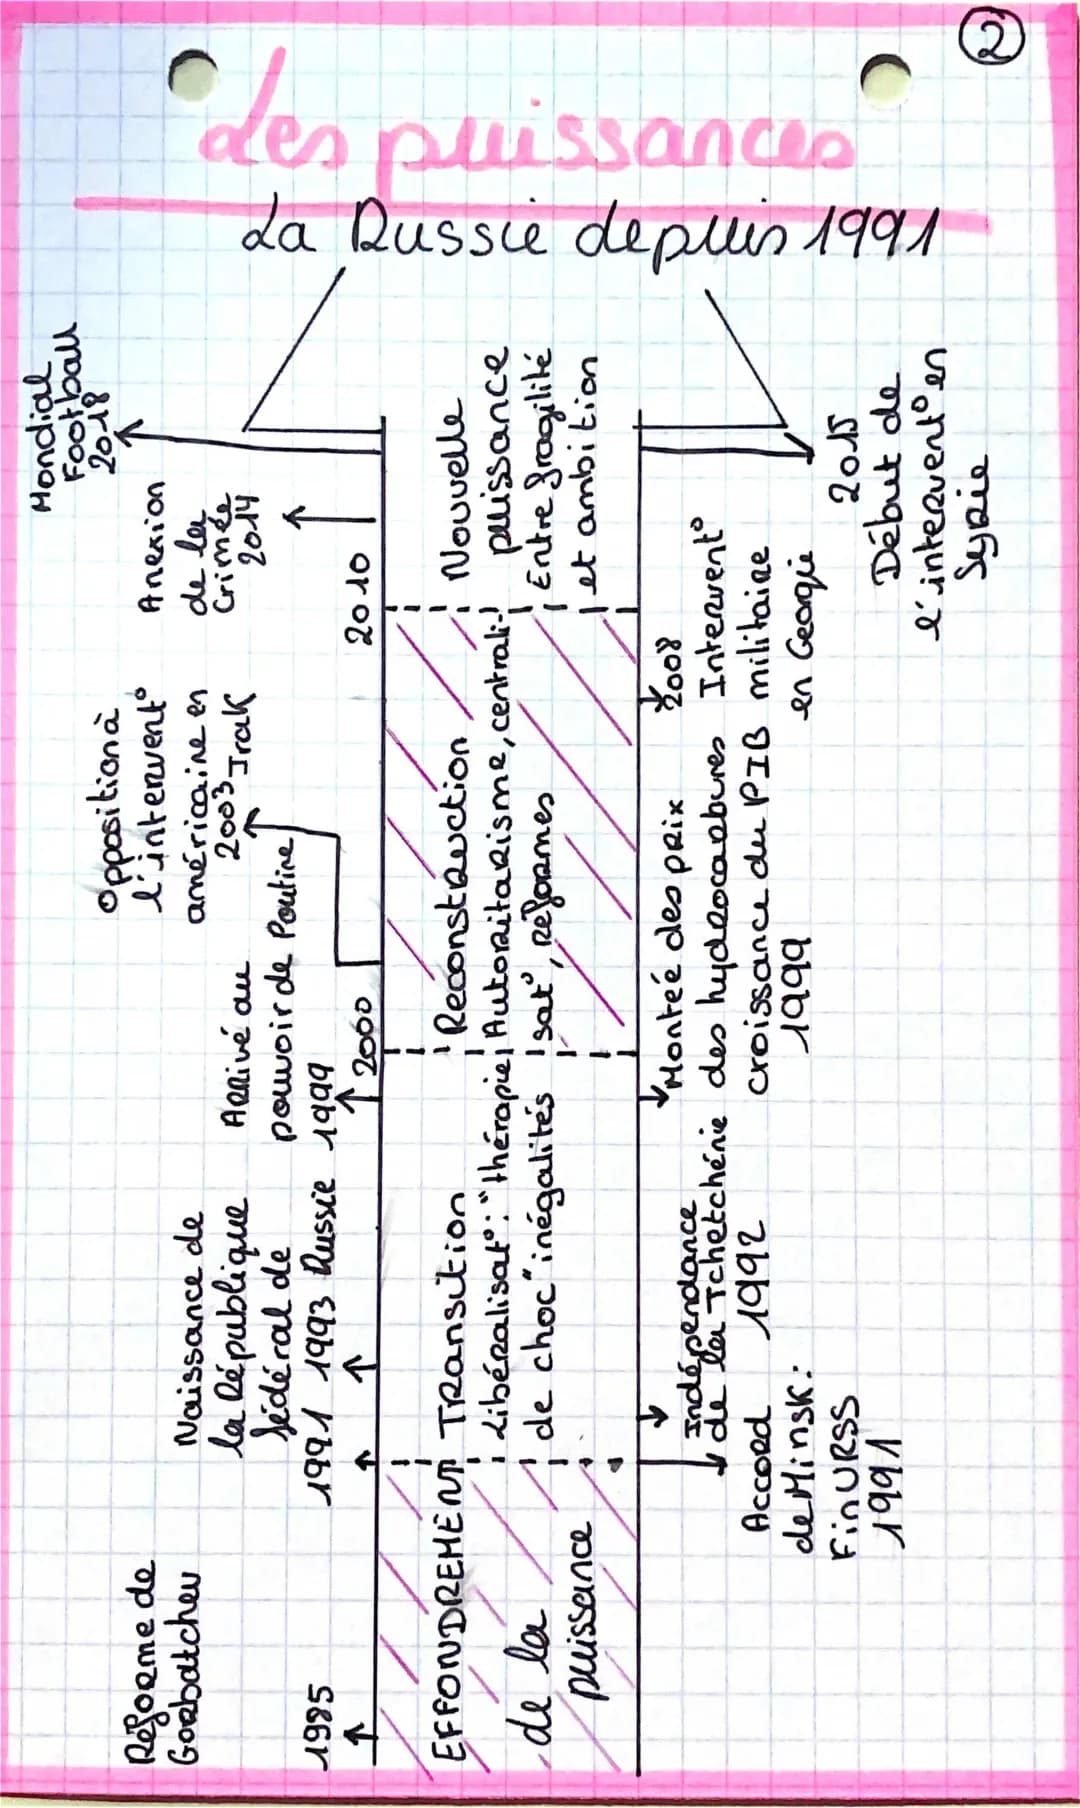 Les puissances
②
La Russie depuis 1991
Réforme de
Gorbatchev
1985
Naissance de
la République
fédéral de
1991 1993 Russie
Arrivé au
pouvoir de Poutine
1999
2000
Opposition à
l'intervent°
américaine en
2003 Irak
2010
Anexion
de la
Crimée
2014
Mondial
Football
2018
EFFONDREMENT
de la
puissance
Transition
Libéralisat°: "thérapie
de choc" inégalités
Reconstruction
Autoritarisme, centrali-
sat°, réformes
Nouvelle
puissance
Entre fragilité
et ambition
Accord
de Minsk:
Fin URSS
1991
Indépendance
de la Tchetchénie
1992
Montée des prix
des hydrocarbures
croissance du PIB
1999
2008
Intervent°
militaire
en Georgie
2015
Début de
l'intervent° en
Syrie